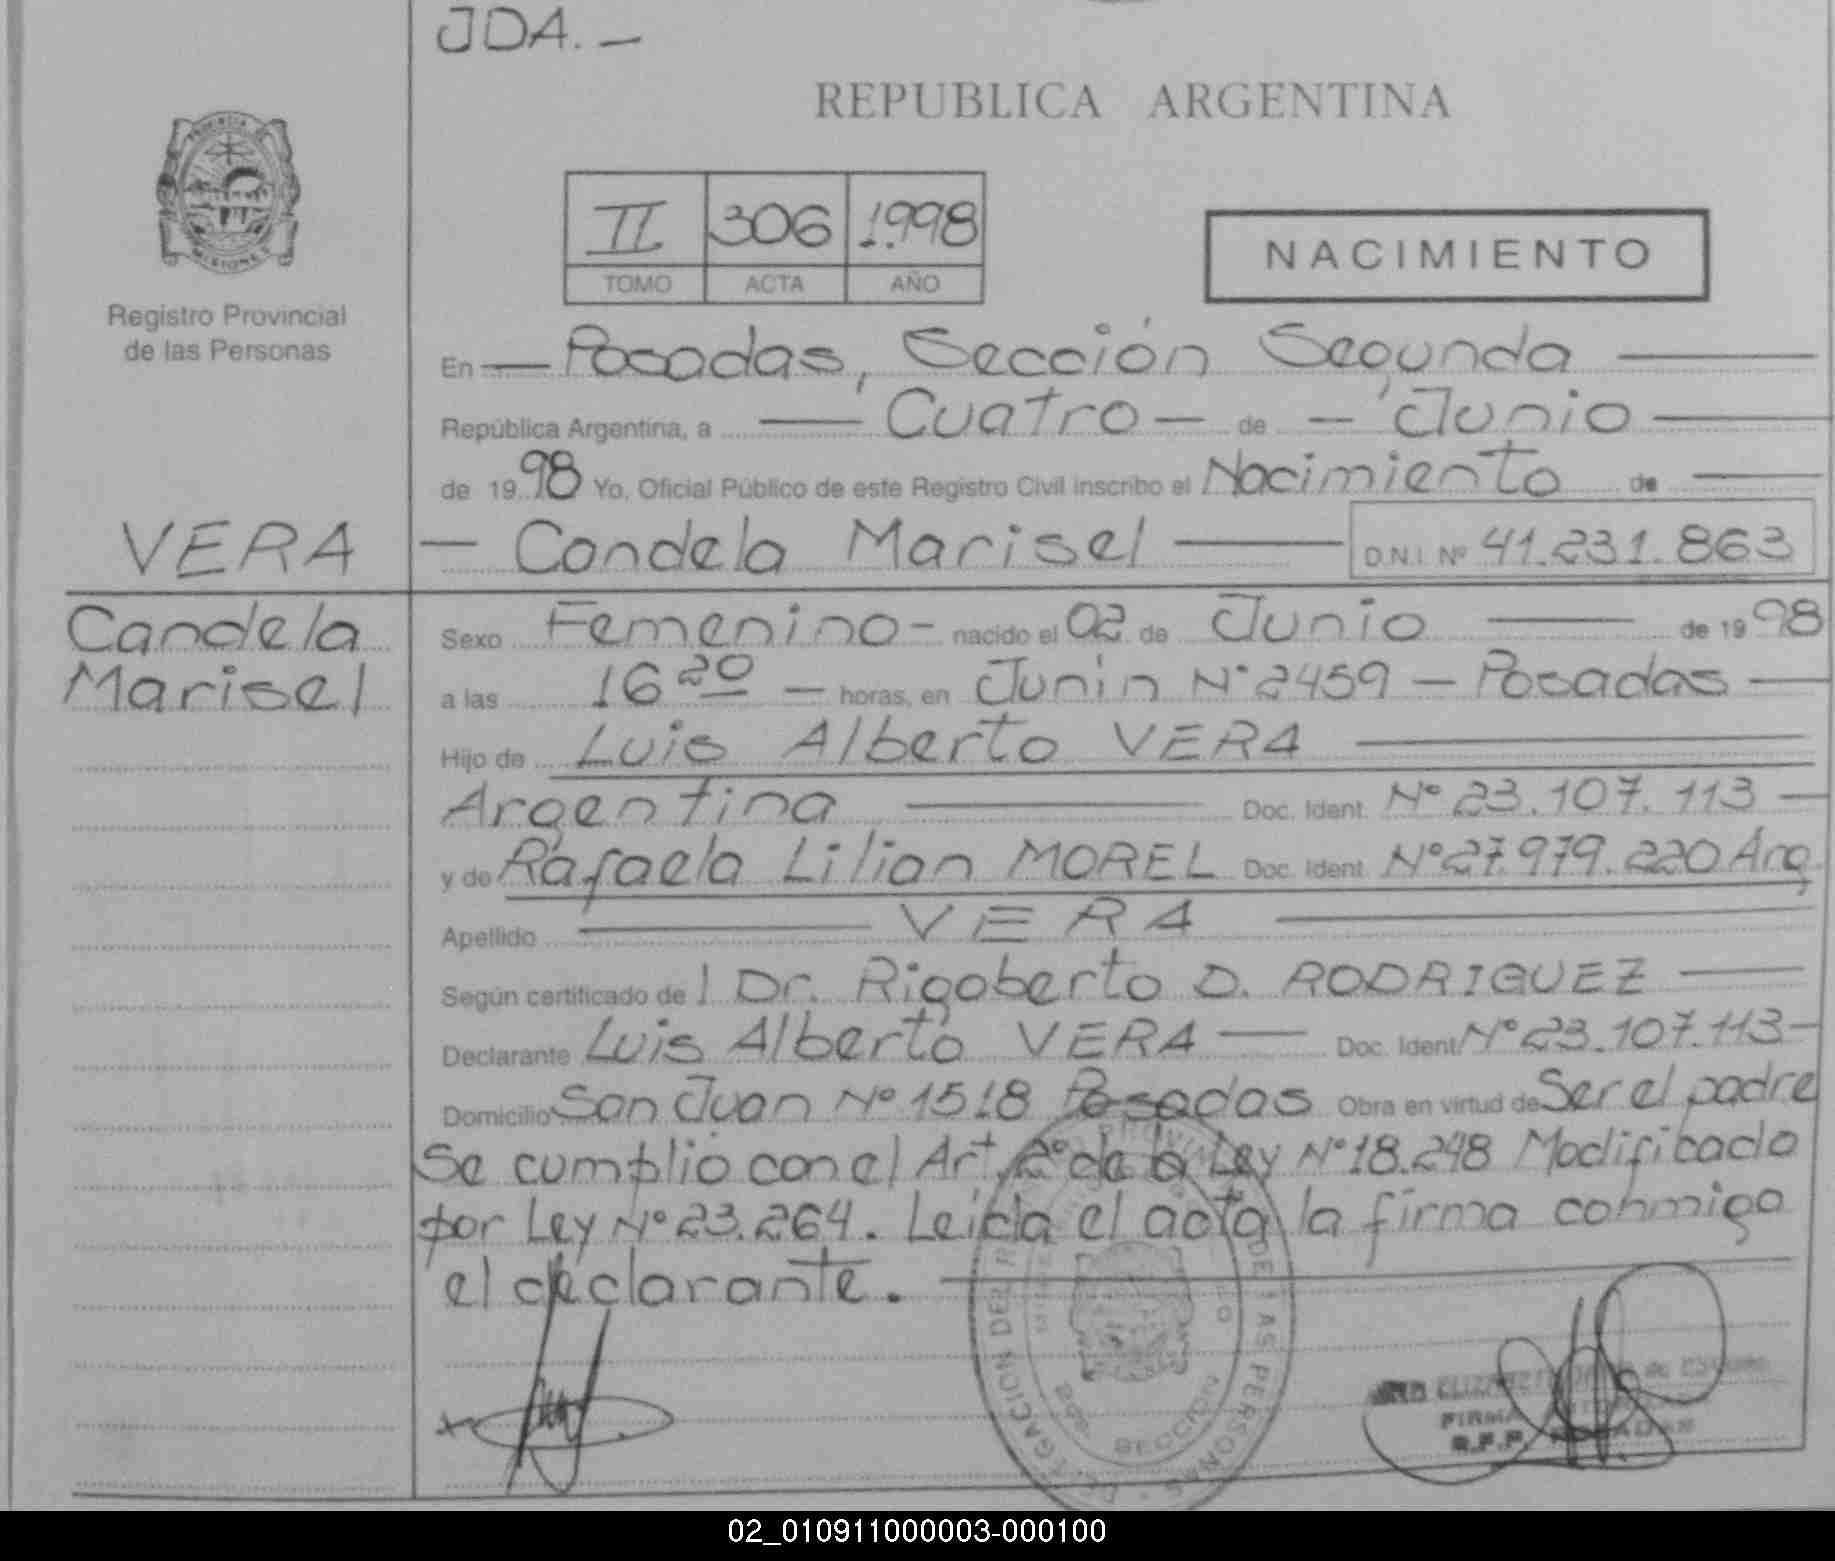 JDA. —
REPUBLICA ARGENTINA
PROVINCIA DE
MISIONES
Registro Provincial
de las Personas
II 306 1.998
TOMO ACTA AÑO
NACIMIENTO
En — Posadas, Sección Segunda —
República Argentina, a — Cuatro — de — Junio —
de 19 98 Yo, Oficial Público de este Registro Civil inscribo el Nacimiento de —
VERA
— Candela Marisel — D.N.I. Nº 41.231.863
Candela
Marisel
Sexo Femenino — nacido el 02 de Junio — de 19 98
a las 16 20 — horas, en Junin Nº 2459 — Posadas —
Hijo de Luis Alberto VERA —
Argentina — Doc. Ident. Nº 23.107.113 —
y de Rafaela Lilian MOREL Doc. Ident. Nº 27.979.220 Arg.
Apellido — VERA —
Según certificado de l Dr. Rigoberto D. RODRIGUEZ —
Declarante Luis Alberto VERA — Doc. Ident Nº 23.107.113 —
Domicilio San Juan Nº 1518 Posadas Obra en virtud de Ser el padre
Se cumplió con el Art. 2º de la Ley Nº 18.248 Modificado
por Ley Nº 23.264. Leida el acta la firma conmigo
el declarante. —
DELEGACION DEL DE LAS PERSONAS
SECCION
FIRMA
R.P.P. POSADAS
02_010911000003-000100